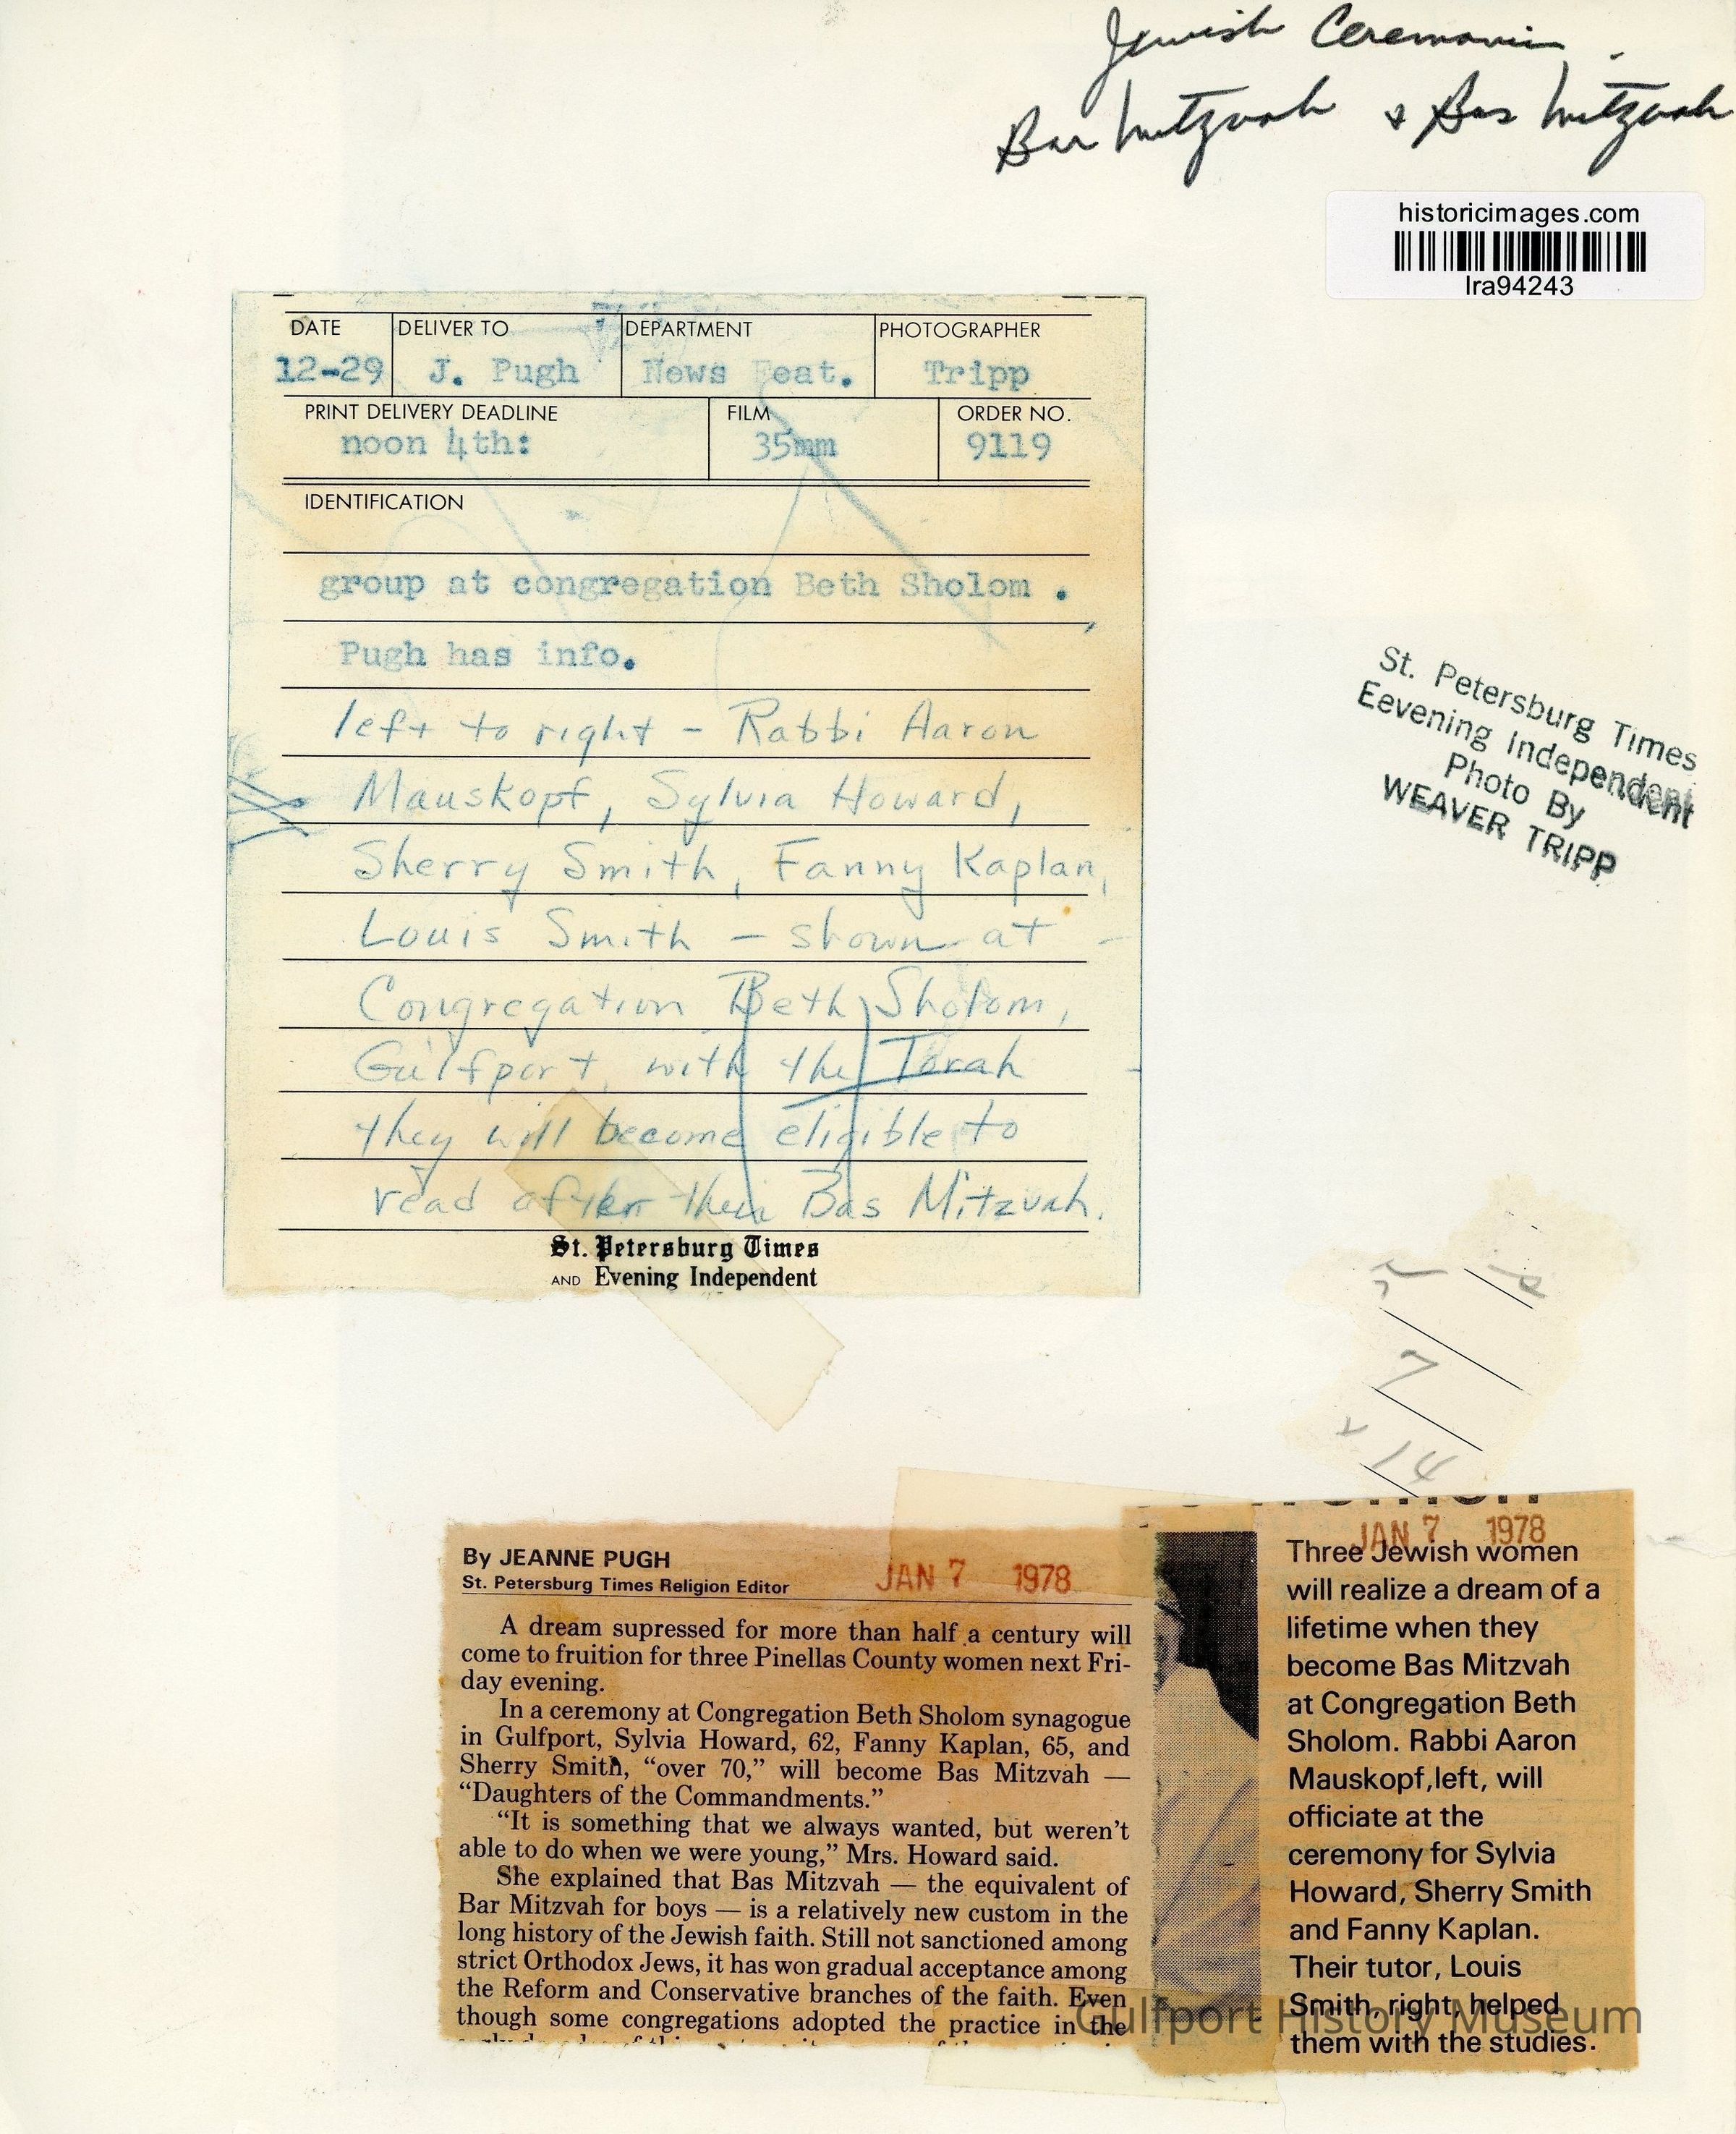 Jewish Ceremonies
Bar Mitzvah & Bas Mitzvah
historicimages.com
lra94243
DATE DELIVER TO DEPARTMENT PHOTOGRAPHER
12-29 J. Pugh News Feat. Tripp
PRINT DELIVERY DEADLINE FILM ORDER NO.
noon 4th: 35mm 9119
IDENTIFICATION
group at congregation Beth Sholom .
Pugh has info.
left to right - Rabbi Aaron
Mauskopf, Sylvia Howard,
Sherry Smith, Fanny Kaplan,
Louis Smith - shown at -
Congregation Beth Sholom,
Gulfport, with the Torah
they will become eligible to
read after their Bas Mitzvah.
St. Petersburg Times
AND Evening Independent
St. Petersburg Times
Eevening Independent
Photo By
WEAVER TRIPP
7
14
By JEANNE PUGH
St. Petersburg Times Religion Editor
JAN 7 1978
A dream supressed for more than half a century will
come to fruition for three Pinellas County women next Fri-
day evening.
In a ceremony at Congregation Beth Sholom synagogue
in Gulfport, Sylvia Howard, 62, Fanny Kaplan, 65, and
Sherry Smith, “over 70,” will become Bas Mitzvah —
“Daughters of the Commandments.”
“It is something that we always wanted, but weren’t
able to do when we were young,” Mrs. Howard said.
She explained that Bas Mitzvah — the equivalent of
Bar Mitzvah for boys — is a relatively new custom in the
long history of the Jewish faith. Still not sanctioned among
strict Orthodox Jews, it has won gradual acceptance among
the Reform and Conservative branches of the faith. Even
though some congregations adopted the practice in the
JAN 7 1978
Three Jewish women
will realize a dream of a
lifetime when they
become Bas Mitzvah
at Congregation Beth
Sholom. Rabbi Aaron
Mauskopf,left, will
officiate at the
ceremony for Sylvia
Howard, Sherry Smith
and Fanny Kaplan.
Their tutor, Louis
Smith, right, helped
them with the studies.
Gulfport History Museum